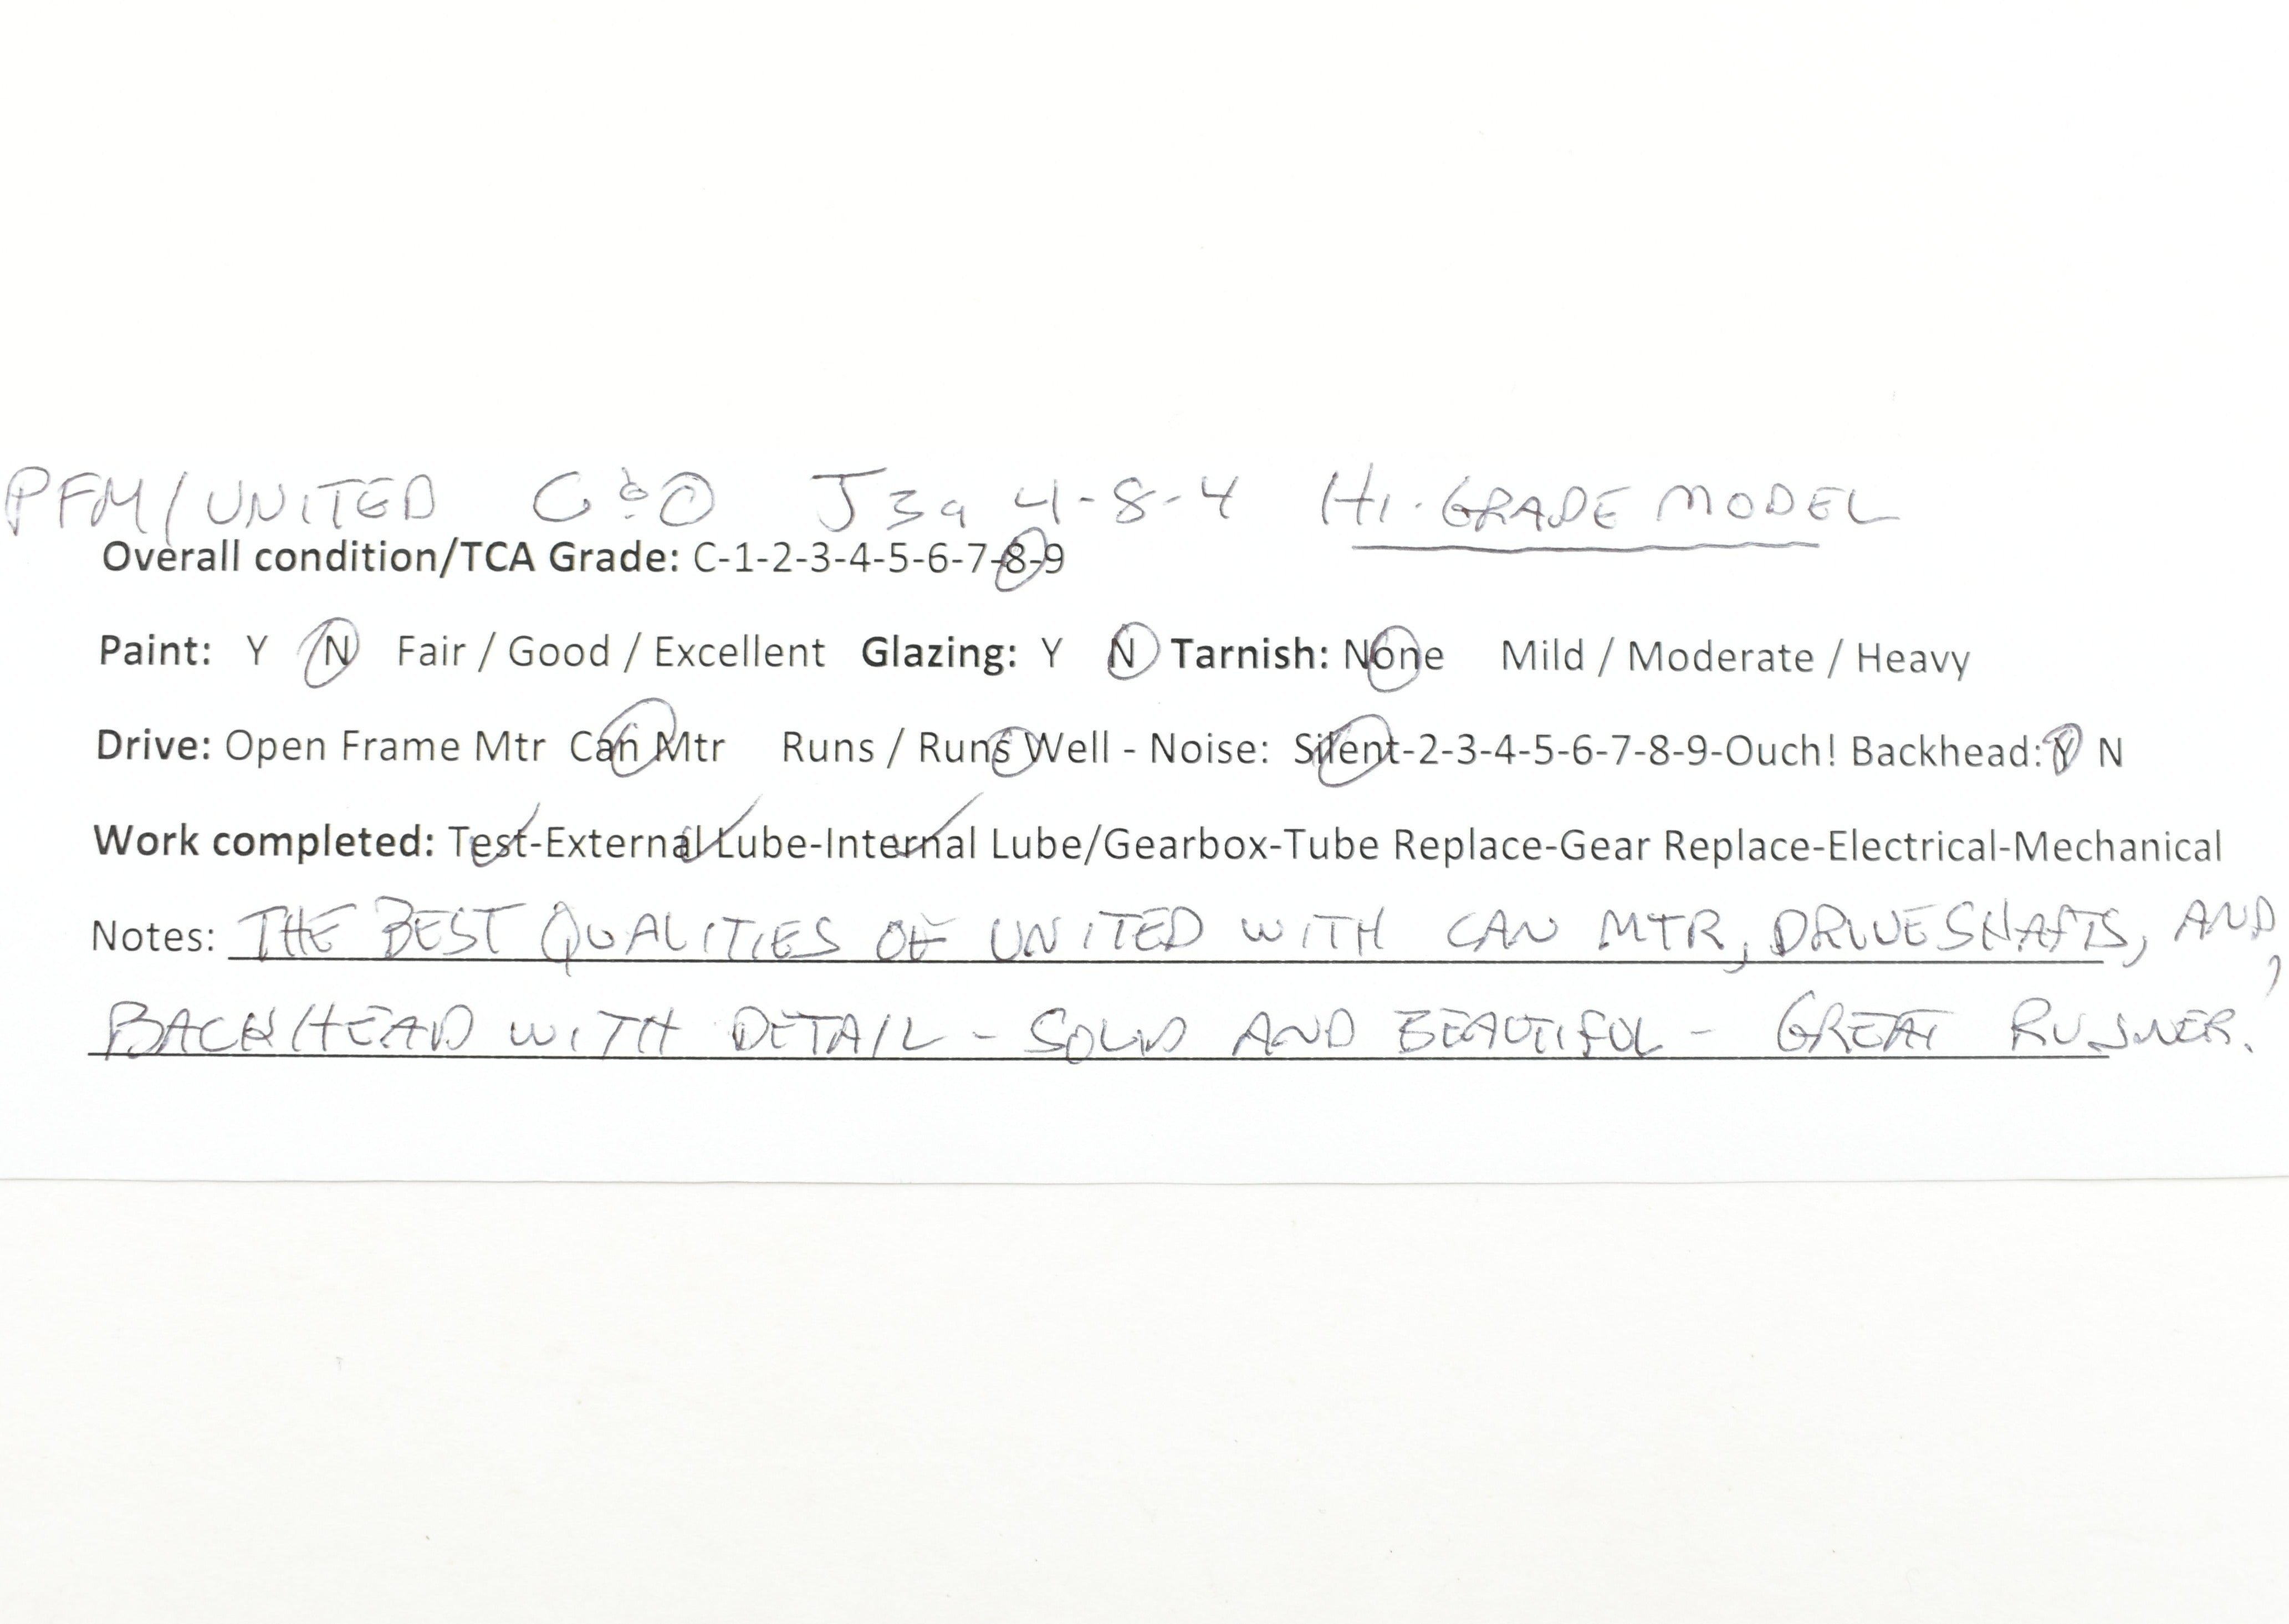 PFM/UNITED C&O J3a 4-8-4 HI-GRADE MODEL
Overall condition/TCA Grade: C-1-2-3-4-5-6-7-8-9
Paint: Y N Fair / Good / Excellent Glazing: Y N Tarnish: None Mild / Moderate / Heavy
Drive: Open Frame Mtr Can Mtr Runs / Runs Well - Noise: Silent-2-3-4-5-6-7-8-9-Ouch! Backhead: Y N
Work completed: Test-External Lube-Internal Lube/Gearbox-Tube Replace-Gear Replace-Electrical-Mechanical
Notes: THE BEST QUALITIES OF UNITED WITH CAN MTR, DRIVESHAFTS, AND,
BACKHEAD WITH DETAIL - SOLID AND BEAUTIFUL - GREAT RUNNER.